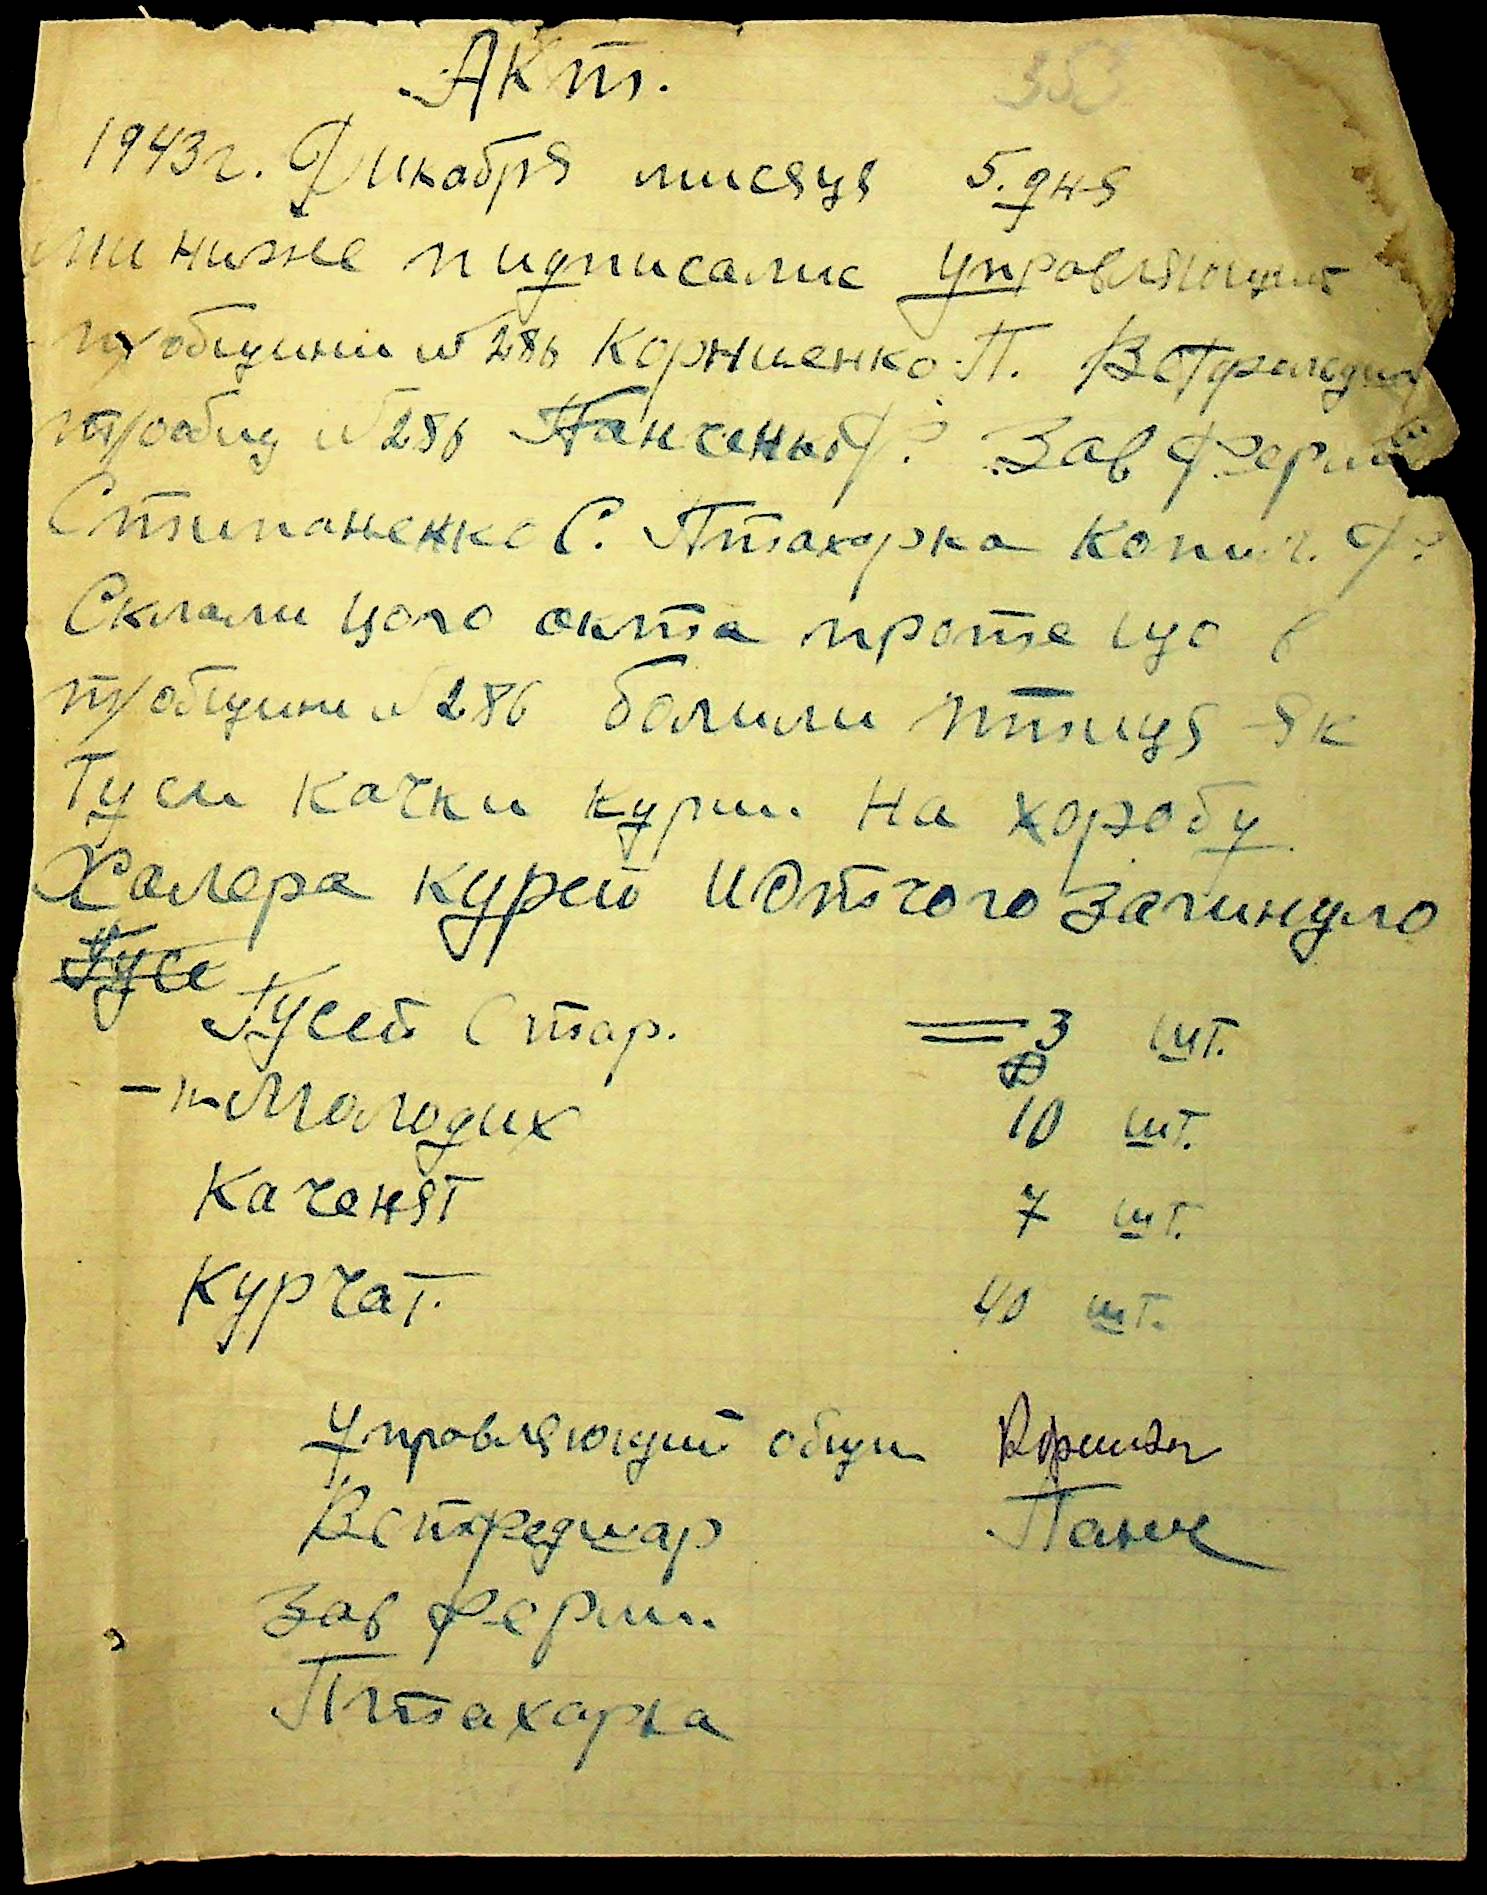 Акт.
353
1943 г. Дикабря мисяця 5. дня
ми ниже пидписалис управляющий
т/общини № 286 Корниенко П. Вет
т/общ № 286 Панченко Ф. Зав Ферми
Стипаненко С. Птахорка Ф.
Склали цого акта проте що в
т/общини № 286 болили птиця як
Гуси качки кури на хоробу
Халера курей и Отчого загинуло
Гусе
Гусей Стар. 3 шт.
-"- Молодих 10 шт.
Каченят 7 шт.
Курчат. 40 шт.
управляющий общи
Панч
Зав ферми
Птахарка